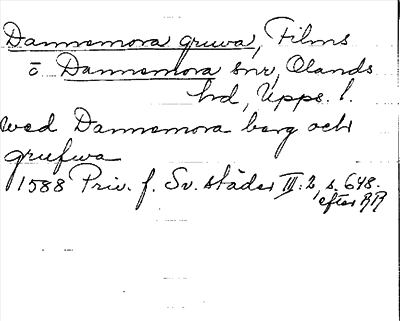 Dannemora gruva, Films
o Dannemora snr, Olands
hrd, Upps. l.
wed Dannemora berg och
grufwa
1588 Priv. f. Sv. städer III: 2, s. 648.
efter RR